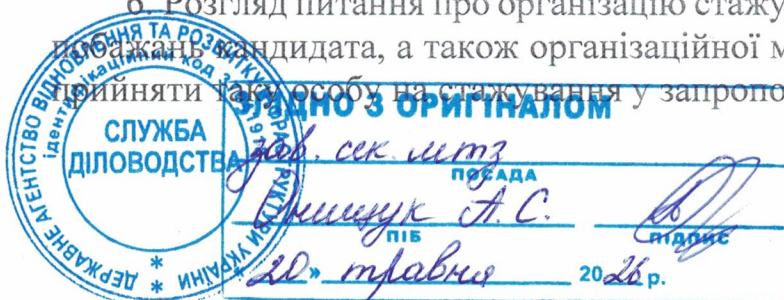 6. Розгляд питання про організацію стажу
побажань кандидата, а також організаційної м
прийняти таку особу на стажування у запропо
ДЕРЖАВНЕ АГЕНТСТВО ВІДНОВЛЕННЯ ТА РОЗВИТКУ ІНФРАСТРУКТУРИ УКРАЇНИ
ідентифікаційний код
СЛУЖБА
ДІЛОВОДСТВА
ЗГІДНО З ОРИГІНАЛОМ
зав. сек. мтз
ПОСАДА
Онищук А. С.
ПІБ
ПІДПИС
20» травня 2026 р.